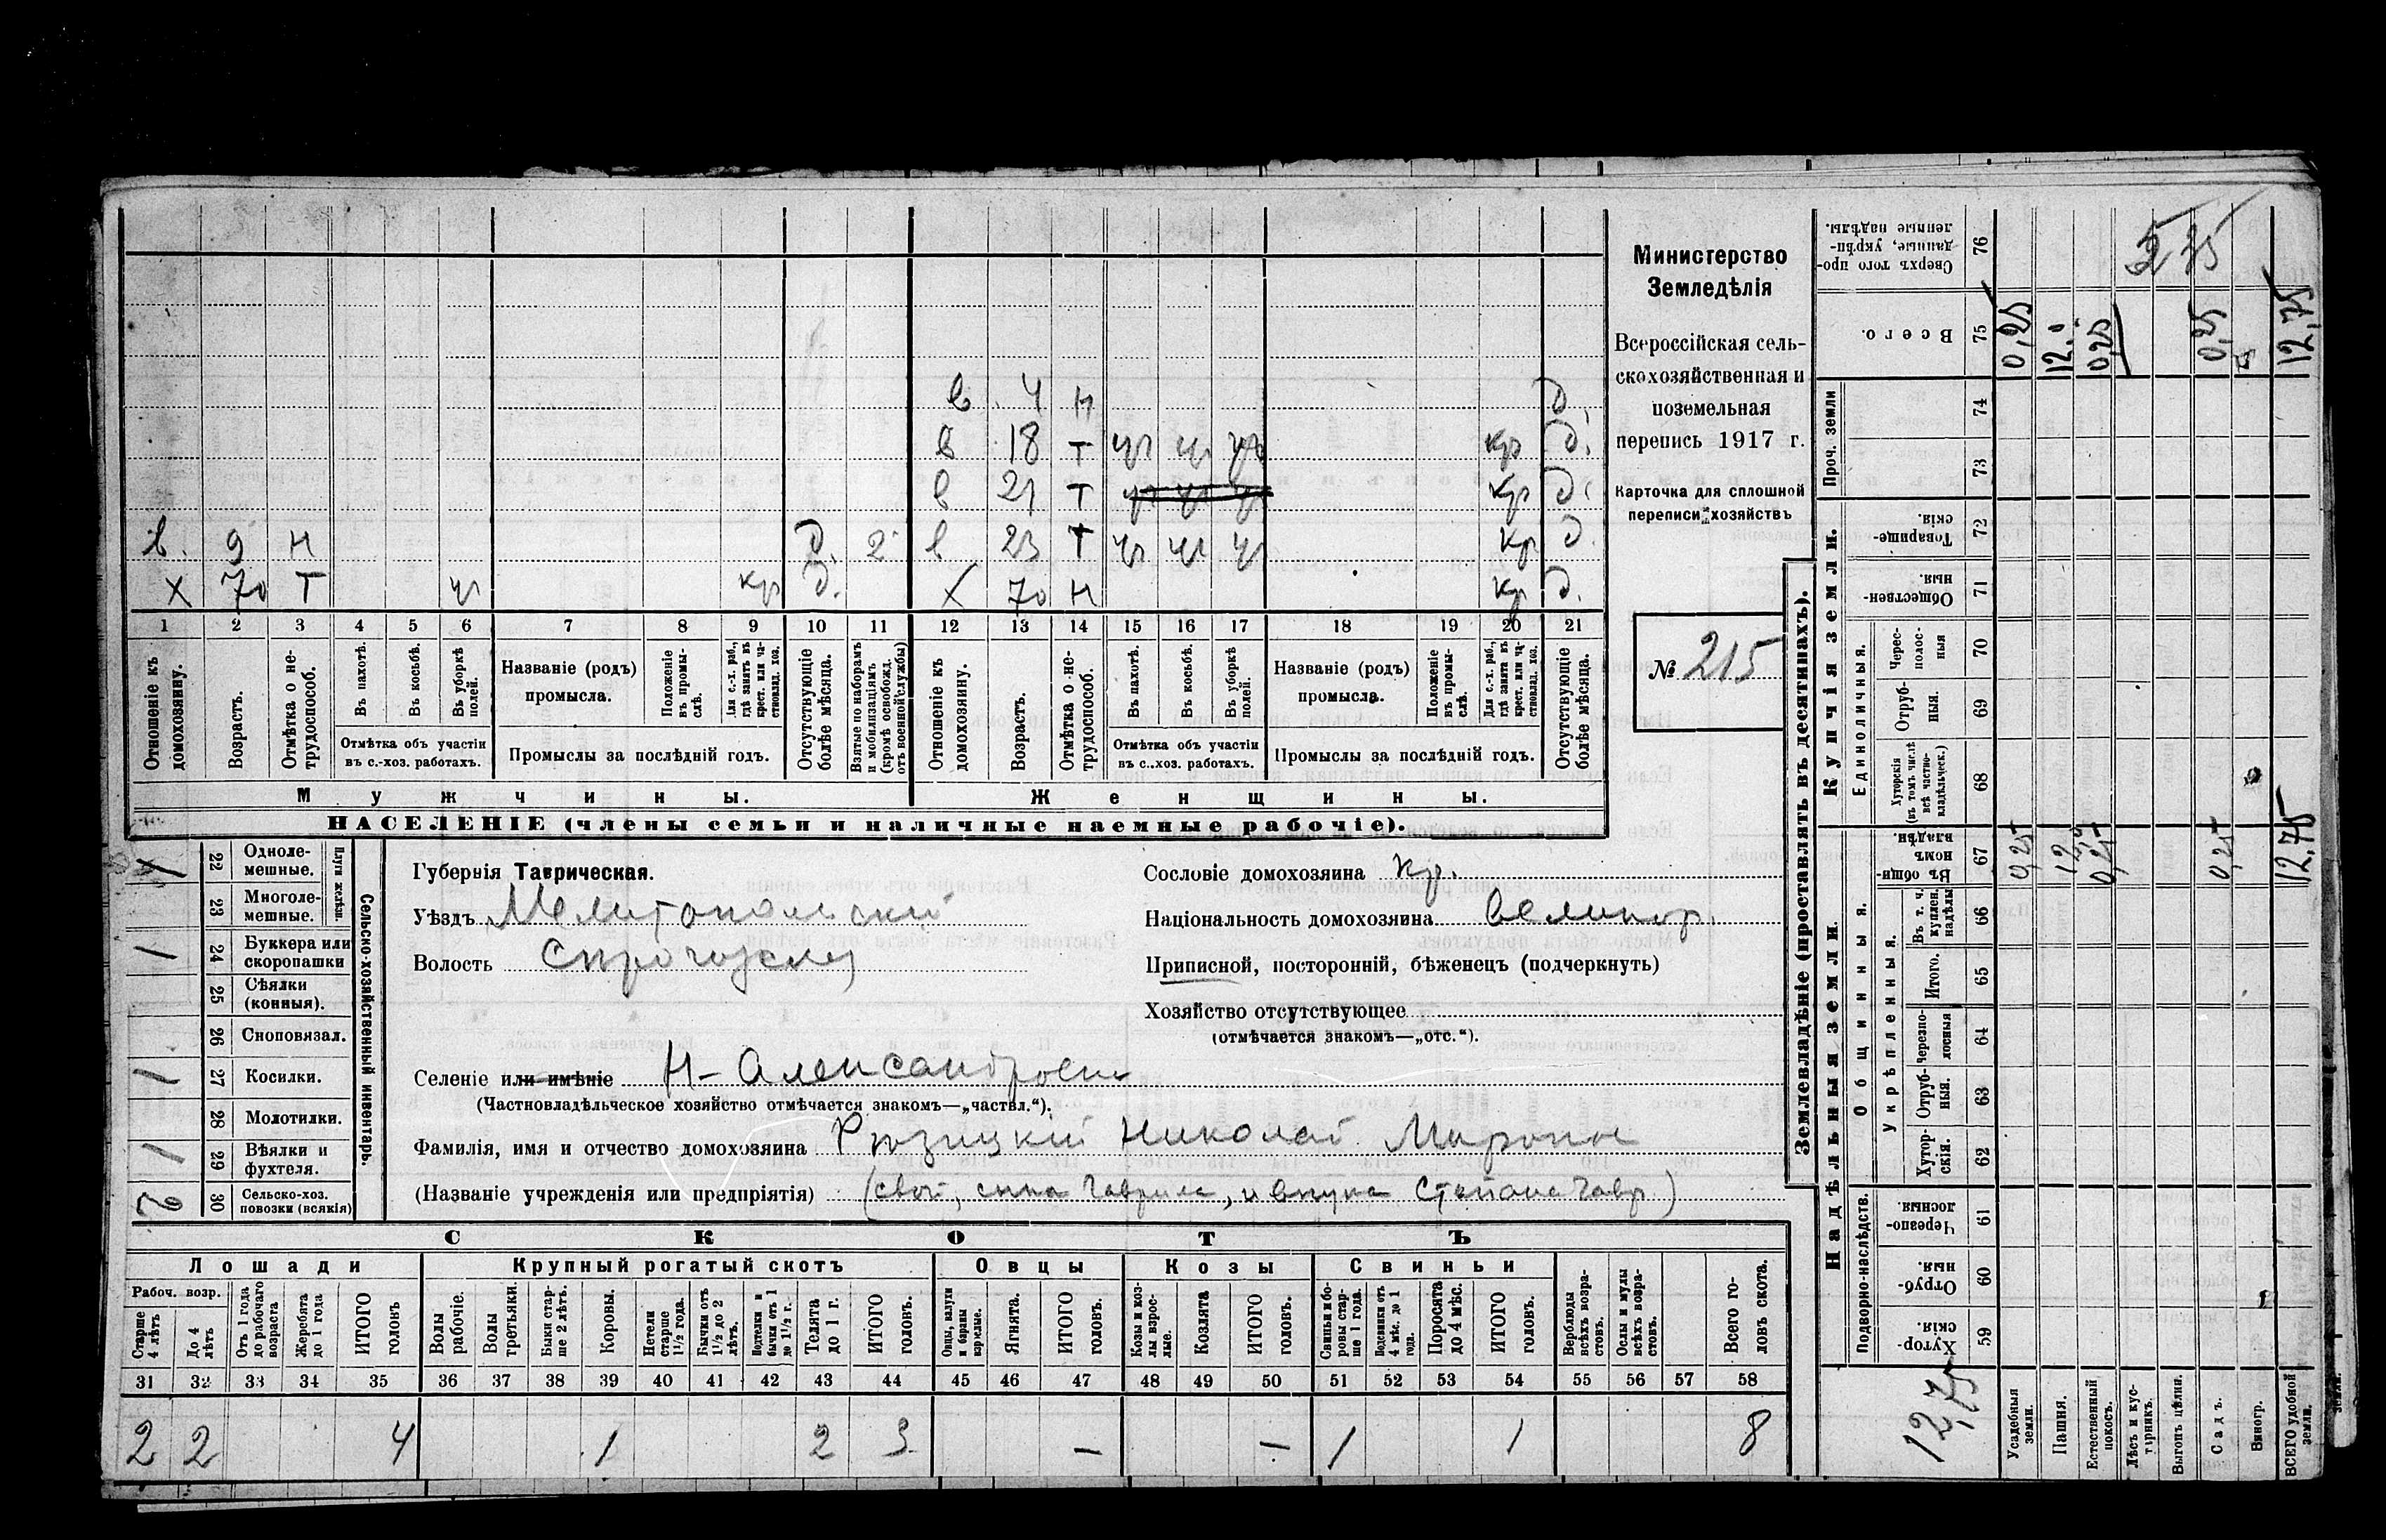 Министерство
Земледѣлія
Всероссійская сель-
скохозяйственная и
поземельная
перепись 1917 г.
Карточка для сплошной
переписи хозяйствъ
№ 215
в 4 н д.
в 18 т чг чг чг кр д.
в 21 т чг чг чг кр д.
в. 9 н д. 2 в 23 т чг чг чг кр д.
х 70 т чг кр д. х 70 н кр д.
1 2 3 4 5 6 7 8 9 10 11 12 13 14 15 16 17 18 19 20 21
Отношеніе къ домохозяину.
Возрастъ.
Отмѣтка о не-трудоспособ.
Въ пахотѣ.
Въ косьбѣ.
Въ уборкѣ полей.
Отмѣтка объ участіи
въ с.-хоз. работахъ.
Названіе (родъ)
промысла.
Положеніе въ промы-слѣ.
Для с.-х. раб., гдѣ занятъ въ крест. или ча-стновлад. хоз.
Промыслы за послѣдній годъ.
Отсутствующіе болѣе мѣсяца.
Взятые по наборамъ и мобилизаціямъ (кромѣ освобожд. отъ военной службы)
Отношеніе къ домохозяину.
Возрастъ.
Отмѣтка о не-трудоспособ.
Въ пахотѣ.
Въ косьбѣ.
Въ уборкѣ полей.
Отмѣтка объ участіи
въ с.-хоз. работахъ.
Названіе (родъ)
промысла.
Положеніе въ промы-слѣ.
Для с.-х. раб., гдѣ занята въ крест. или ча-стновлад. хоз.
Промыслы за послѣдній годъ.
Отсутствующіе болѣе мѣсяца.
Мужчины. Женщины.
НАСЕЛЕНІЕ (члены семьи и наличные наемные рабочіе).
Сельско-хозяйственный инвентарь.
Плуги желѣзн.
1 22 Одноле-мешные.
23 Многоле-мешные.
1 24 Буккера или скоропашки
25 Сѣялки (конныя).
26 Сноповязал.
1 27 Косилки.
28 Молотилки.
1 29 Вѣялки и фухтеля.
2 30 Сельско-хоз. повозки (всякія)
Губернія Таврическая.
Уѣздъ Мелитопольский
Волость
Сословіе домохозяина кр.
Національность домохозяина великор.
Приписной, посторонній, бѣженецъ (подчеркнуть)
Хозяйство отсутствующее
(отмѣчается знакомъ—„отс.“).
Селеніе или имѣніе Н-Александровка
(Частновладѣльческое хозяйство отмѣчается знакомъ—„частвл.“).
Фамилія, имя и отчество домохозяина Рюзицкий Николай Миронов
(Названіе учрежденія или предпріятія) (свой, сына Гаврила, и внука Степана Гавр.)
СКОТЪ
Лошади Крупный рогатый скотъ Овцы Козы Свиньи
Рабоч. возр.
Старше 4 лѣтъ
До 4 лѣтъ
Отъ 1 года до рабочаго возраста
Жеребята до 1 года
ИТОГО головъ
Волы рабочіе.
Волы третьяки.
Быки стар-ше 2 лѣтъ.
Коровы.
Нетели старше 1½ года.
Бычки отъ 1½ до 2 лѣтъ.
Подтелки и бычки отъ 1 до 1½ г.
Телята до 1 г.
ИТОГО головъ.
Овцы, валухи и бараны взрослые.
Ягнята.
ИТОГО головъ.
Козы и коз-лы взрос-лые.
Козлята
ИТОГО головъ.
Свиньи и бо-ровы стар-ше 1 года.
Подсвинки отъ 4 мѣс. до 1 года.
Поросята до 4 мѣс.
ИТОГО головъ.
Верблюды всѣхъ возра-стовъ.
Ослы и мулы всѣхъ возра-стовъ.
Всего го-ловъ скота.
31 32 33 34 35 36 37 38 39 40 41 42 43 44 45 46 47 48 49 50 51 52 53 54 55 56 57 58
2 2 4 1 2 3 — — 1 1 8
Землевладѣніе (проставлять въ десятинахъ).
Надѣльныя земли. Купчія земли. Проч. земли
Подворно-наслѣдств.
Общинныя.
Укрѣпленныя.
Единоличныя.
Хутор-скія. 59
Отруб-ныя. 60
Черезпо-лосныя. 61
Хутор-скія. 62
Отруб-ныя. 63
Черезпо-лосныя 64
Итого. 65
Въ т. ч. куплен. надѣлы 66
Въ общи-номъ владѣн. 67
Хуторскія (въ томъ числѣ всѣ частно-владѣльческ.) 68
Отруб-ныя. 69
Черес-полос-ныя 70
Обществен-ныя. 71
Товарище-скія. 72
73
74
Всего. 75
Сверхъ того про-данные, укрѣп-ленные надѣлы. 76
12,75
Усадебныя земли. 0,25 0,25
Пашня. 12,0 12,0
Естественный покосъ. 0,25 0,25
Лѣсъ и кус-тарникъ.
Выгонъ цѣлин.
Садъ. 0,25 0,25
Виногр.
ВСЕГО удобной земли. 12,75 12,75